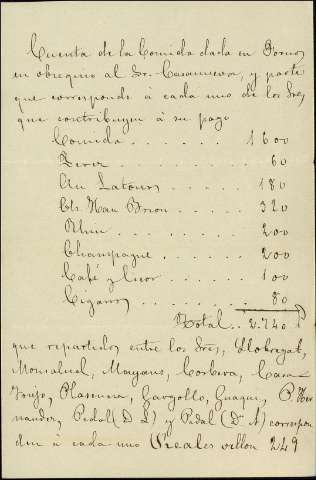 Cuenta de la Comida dada en Fornos
en obsequio al Sr. Casanueva, y parte
que corresponde á cada uno de los Sres
que contribuyen á su pago
Comida . . . . . . 1600
Jerez . . . . . . 60
Ch Latour . . . . . 180
Ch. Hau Brion . . . . 320
Rhin . . . . . . 200
Champagne . . . . . 200
Café y licor . . . . . 100
Cigarros . . . . . . 80
Total . . 2.740
que repartidos entre los Sres, Llobregat,
Monsalud, Mayans, Corbera, Casa
Plasencia, Gargollo, Guaqui, P. Her
nandez, Pidal (D L) y Pidal (Dn A) correspon
den á cada uno Reales vellon 249